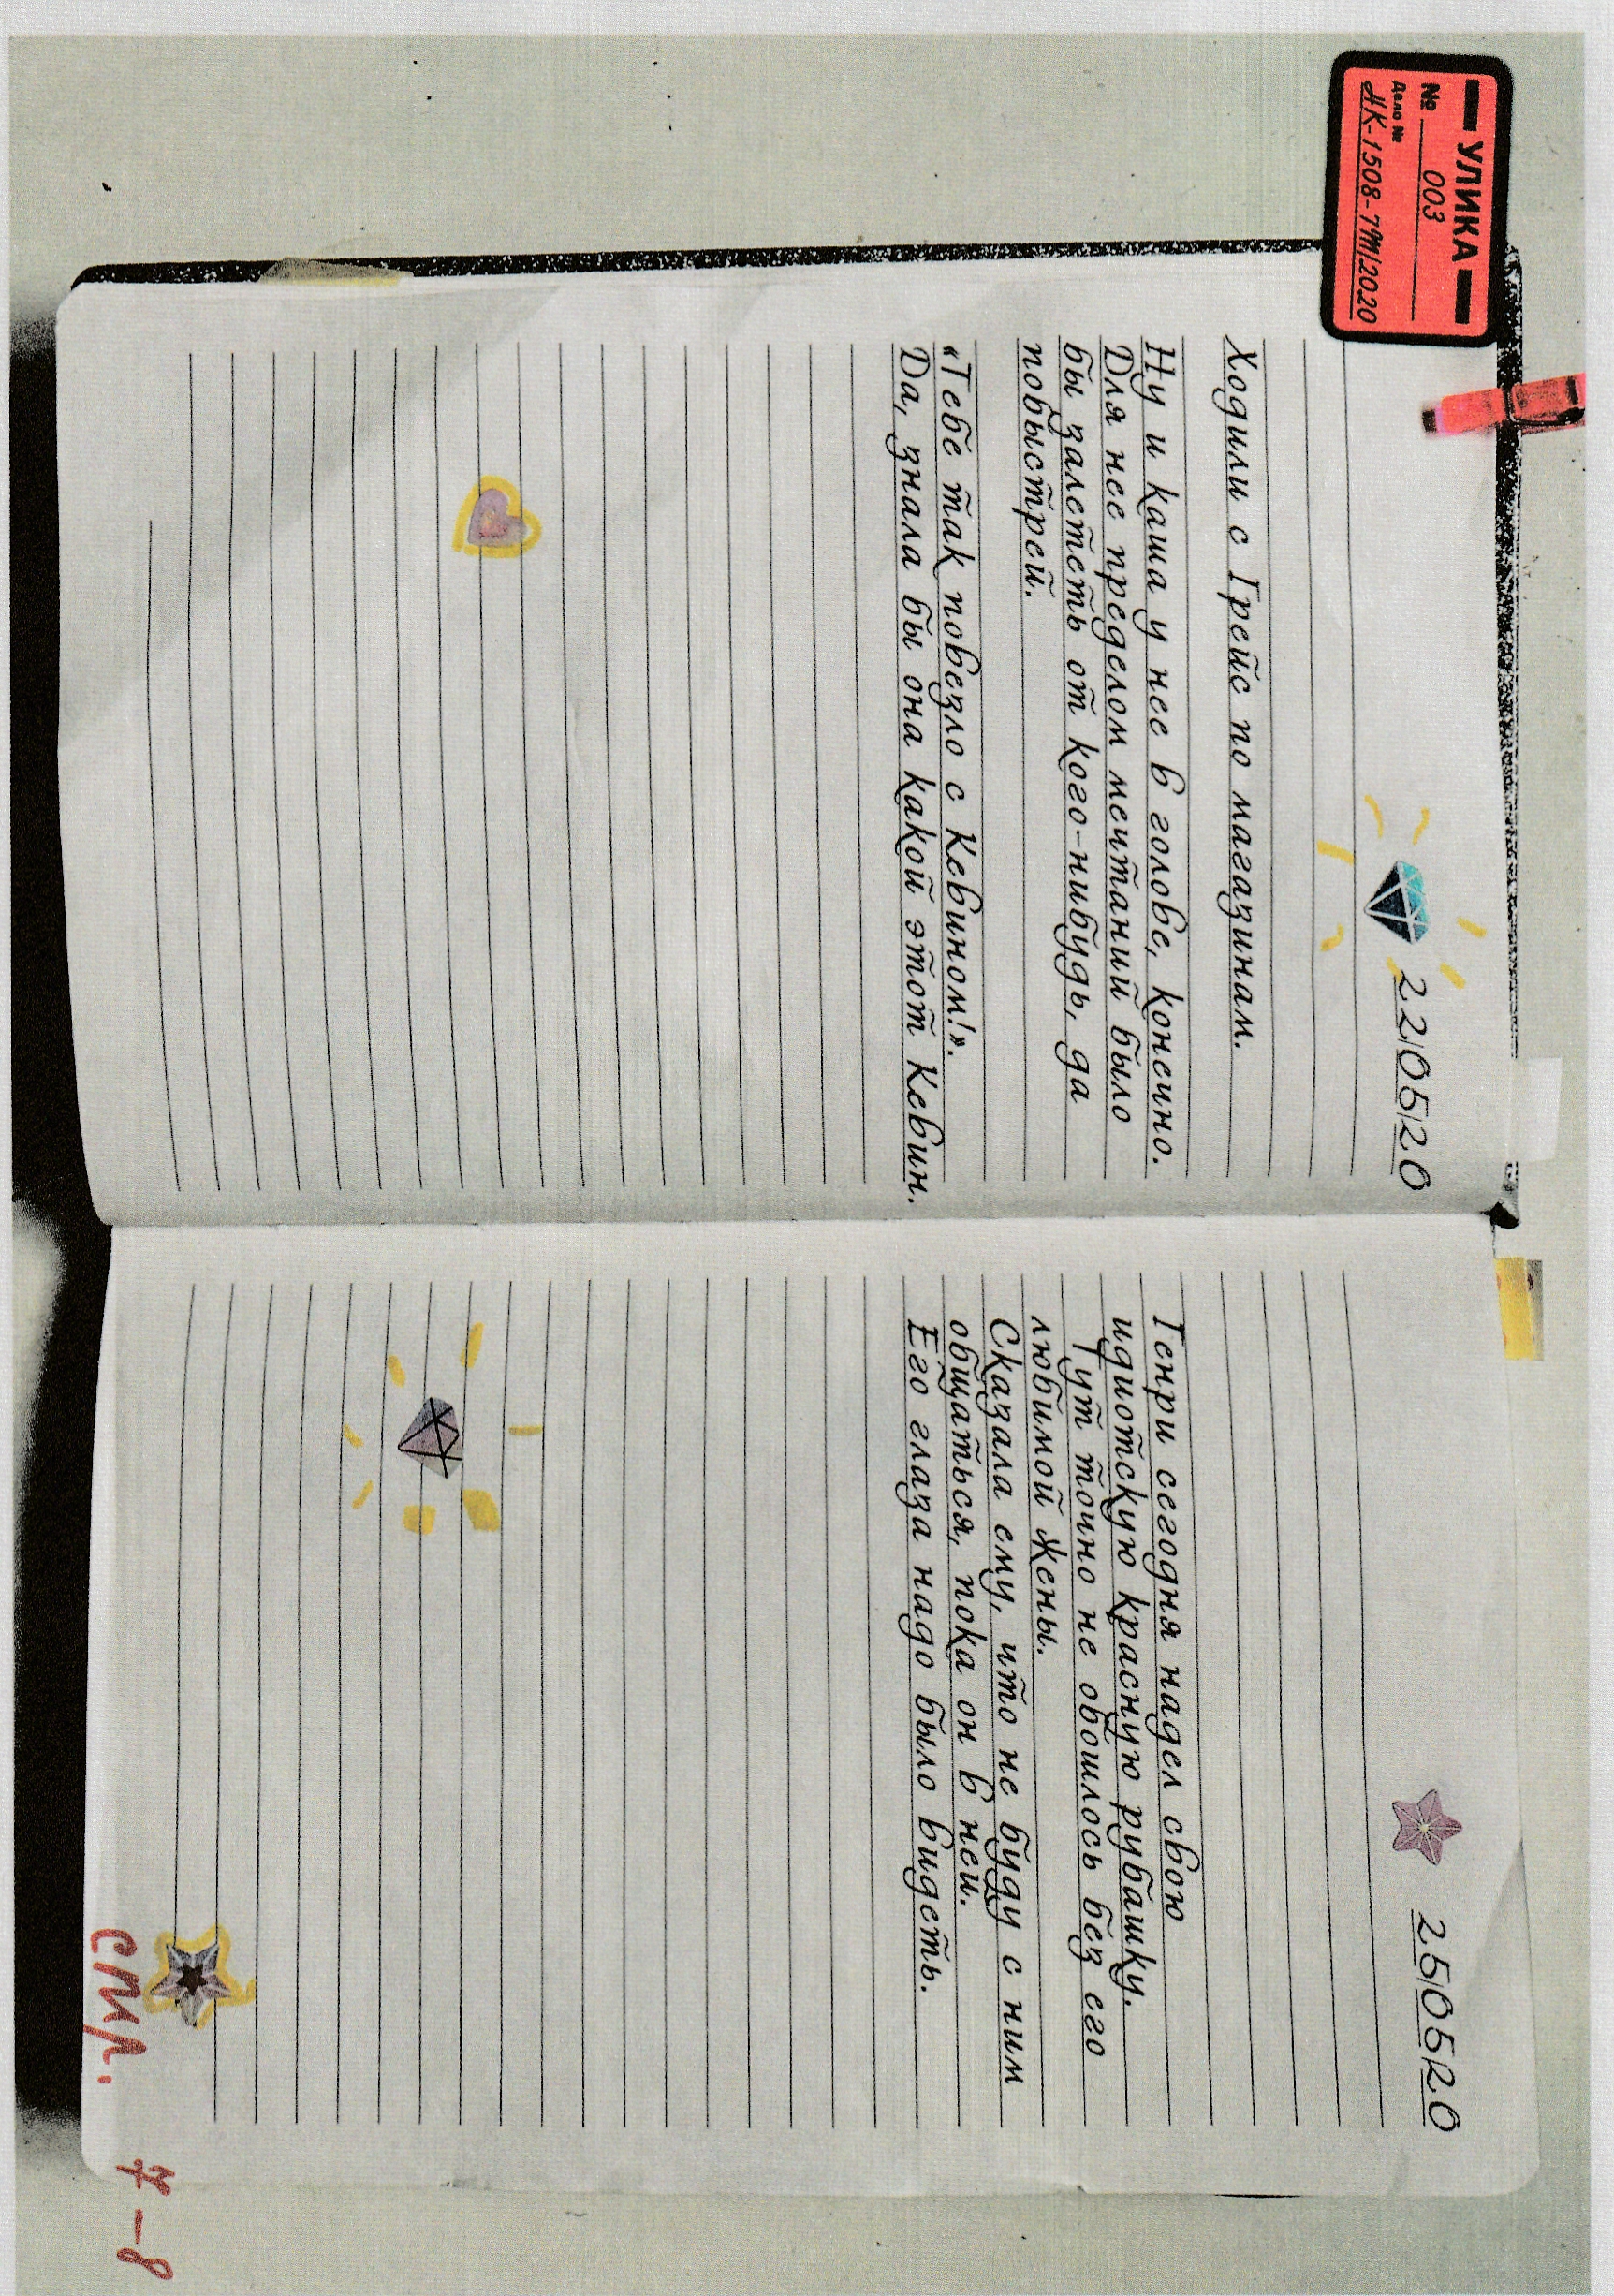 УЛИКА
№ 003
Дело №
НК-1508-7М/2020
22/05/20
Ходили с Грейс по магазинам.
Ну и каша у нее в голове, конечно.
Для нее пределом мечтаний было
бы залететь от кого-нибудь, да
побыстрей.
«Тебе так повезло с Кевином!».
Да, знала бы она какой этот Кевин.
25/05/20
Генри сегодня надел свою
идиотскую красную рубашку.
Тут точно не обошлось без его
любимой жены.
Сказала ему, что не буду с ним
общаться, пока он в ней.
Его глаза надо было видеть.
стр. 7-8